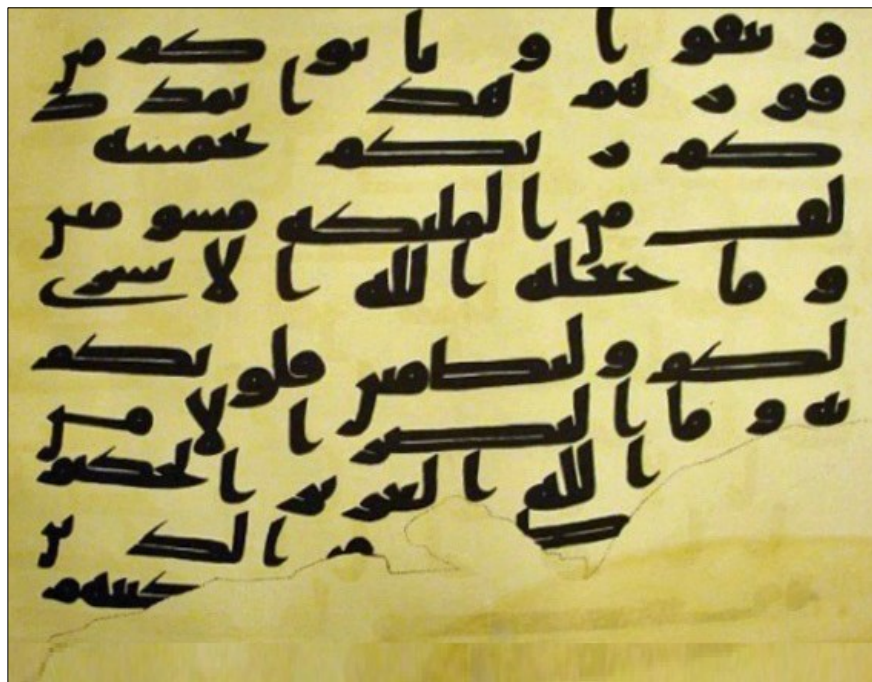 و تتقوا و ياتوكم من
فورهم هذا يمدد
كم ربكم بخمسه
الف من الملئكه مسومين
و ما جعله الله الا بشرى
لكم ولتطمين قلوبكم
به و ما النصر الا من
الله العزيز الحكيم